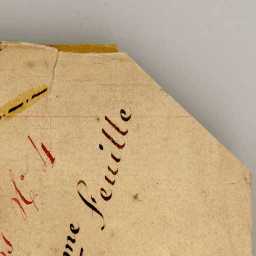 N° 4
me feuille